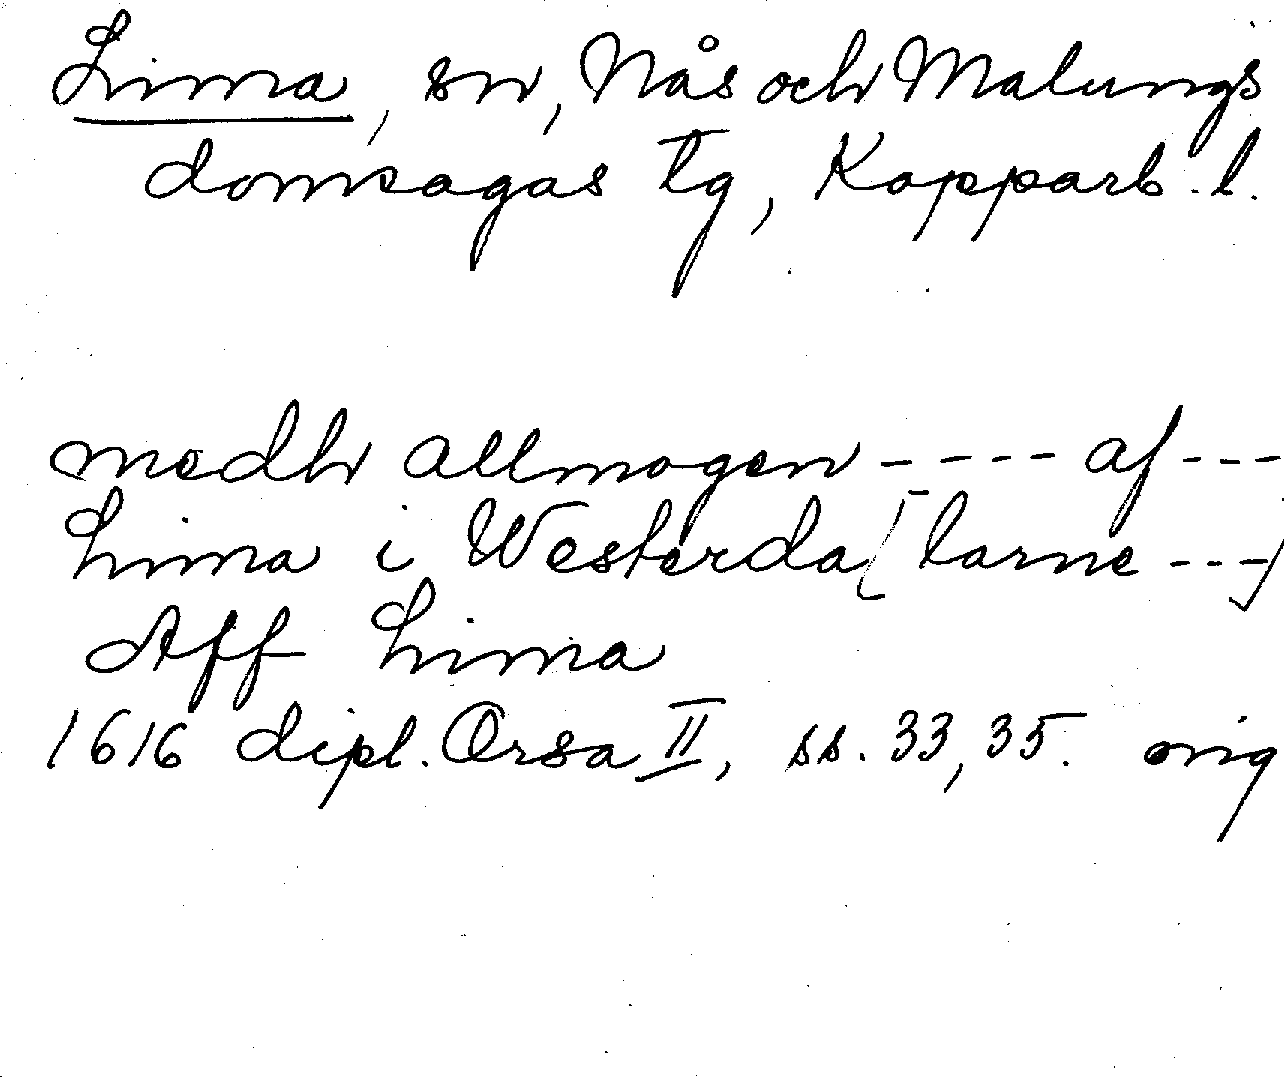 Lima, sn, Nås och Malungs
domsagas tg, Kopparb. l.
medh allmogen ---- af ---
Lima i Westerda[larne ---]
Aff Lima
1616 dipl. Orsa II, ss. 33, 35. orig